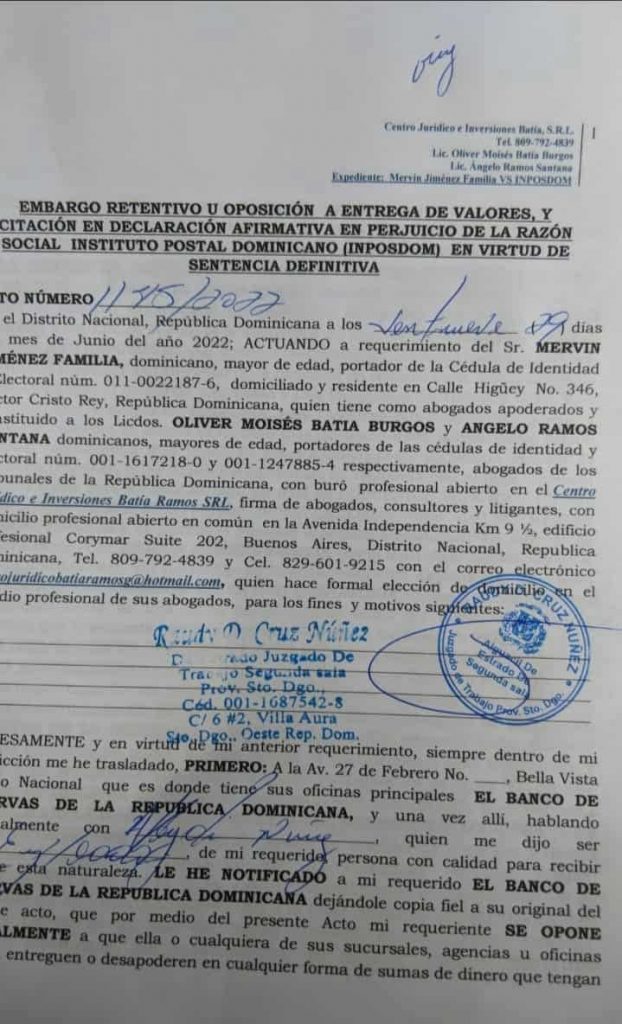 Centro Jurídico e Inversiones Batía, S.R.L.
Tel. 809-792-4839
Lic. Oliver Moisés Batía Burgos
Lic. Ángelo Ramos Santana
Expediente: Mervin Jiménez Familia VS INPOSDOM
1
EMBARGO RETENTIVO U OPOSICIÓN A ENTREGA DE VALORES, Y
CITACIÓN EN DECLARACIÓN AFIRMATIVA EN PERJUICIO DE LA RAZÓN
SOCIAL INSTITUTO POSTAL DOMINICANO (INPOSDOM) EN VIRTUD DE
SENTENCIA DEFINITIVA
TO NÚMERO 1145/2022
el Distrito Nacional, República Dominicana a los 29 días
mes de Junio del año 2022; ACTUANDO a requerimiento del Sr. MERVIN
MÉNEZ FAMILIA, dominicano, mayor de edad, portador de la Cédula de Identidad
Electoral núm. 011-0022187-6, domiciliado y residente en Calle Higüey No. 346,
ctor Cristo Rey, República Dominicana, quien tiene como abogados apoderados y
nstituido a los Licdos. OLIVER MOISÉS BATIA BURGOS y ANGELO RAMOS
NTANA dominicanos, mayores de edad, portadores de las cédulas de identidad y
ctoral núm. 001-1617218-0 y 001-1247885-4 respectivamente, abogados de los
bunales de la República Dominicana, con buró profesional abierto en el Centro
ídico e Inversiones Batía Ramos SRL, firma de abogados, consultores y litigantes, con
micilio profesional abierto en común en la Avenida Independencia Km 9 ½, edificio
fesional Corymar Suite 202, Buenos Aires, Distrito Nacional, Republica
minicana, Tel. 809-792-4839 y Cel. 829-601-9215 con el correo electrónico
rojuridicobatiaramosg@hotmail.com, quien hace formal elección de domicilio en el
dio profesional de sus abogados, para los fines y motivos siguientes:
D. Cruz Núñez
Juzgado De
Trabajo Segunda sala
Prov. Sto. Dgo.,
Céd. 001-1687542-8
C/ 6 #2, Villa Aura
Sto. Dgo., Oeste Rep. Dom.
D. CRUZ NUÑEZ
Alguacil De
Estrado De
Segunda sala
Juzgado de Trabajo Prov. Sto. Dgo.
ESAMENTE y en virtud de mi anterior requerimiento, siempre dentro de mi
icción me he trasladado, PRIMERO: A la Av. 27 de Febrero No. ____, Bella Vista
o Nacional que es donde tiene sus oficinas principales EL BANCO DE
RVAS DE LA REPUBLICA DOMINICANA, y una vez allí, hablando
almente con , quien me dijo ser
, de mi requerido, persona con calidad para recibir
e esta naturaleza. LE HE NOTIFICADO a mi requerido EL BANCO DE
VAS DE LA REPUBLICA DOMINICANA dejándole copia fiel a su original del
e acto, que por medio del presente Acto mi requeriente SE OPONE
ALMENTE a que ella o cualquiera de sus sucursales, agencias u oficinas
entreguen o desapoderen en cualquier forma de sumas de dinero que tengan